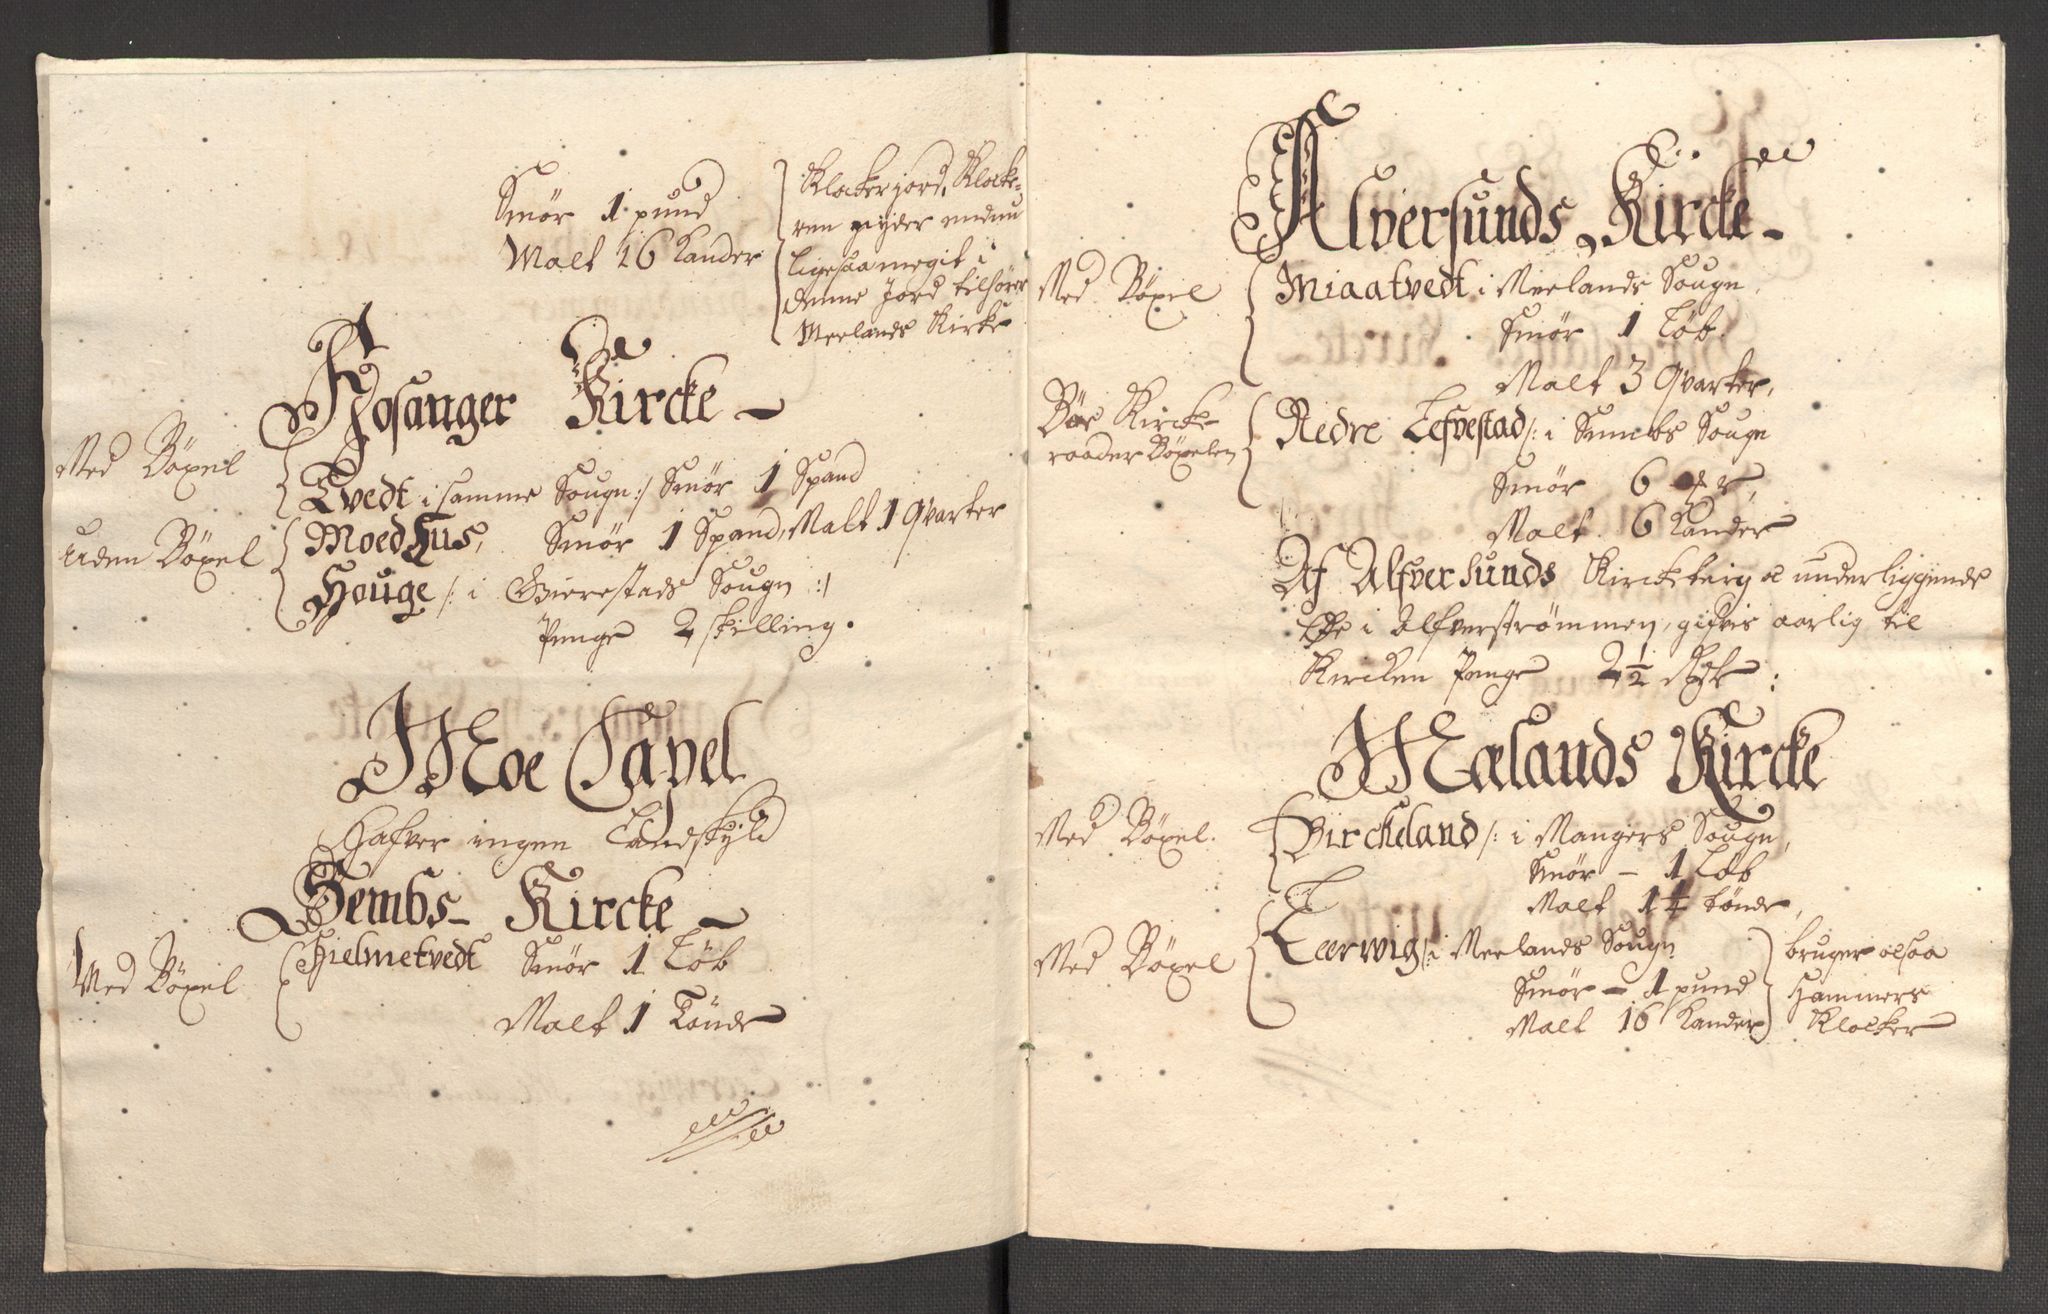 Smør 1 pund
Malt 16 Kander
Klockerjord, Klocke-
ren nyder endnu
ligesaa megit i
denne Jord tilhører
Meelands Kirke
Hosanger Kircke
Med Böxel
Tvedt i samme Sougn :/ Smør 1 Spand
uden Böxel
Moedhus, Smør 1 Spand, Malt 1 Qvarter
Houge /: i Gierestads Sougn :/
Penge 2 skilling.
Moe Capel
Hafver ingen Landskyld
Sembs Kircke
Med Böxel
Hielmetvedt Smør 1 Løb
Malt 1 Tønde
Alversunds Kircke
Med Böxel
Miaatvedt i Meelands Sougn,
Smør 1 Løb.
Malt 3 Qvarter,
Kircke
raader Böxelen
Nedre Lefvestad /: i Sembs Sougn
Smør 6
Malt 6 Kander
Af Alfversunds Kirckeberg oc underliggende
i Alfverstrømmen, gifvis aarlig til
Kircken Penge 2½
Mælands Kircke
Med Böxel.
Birckeland /: i Mangers Sougn,
Smør - 1 Løb
Malt 1¼ tønde,
Med Böxel
Leerwig /: i Meelands Sougn
Smør - 1 pund
Malt 16 Kander
bruger ocsaa
Hammers
Klocker